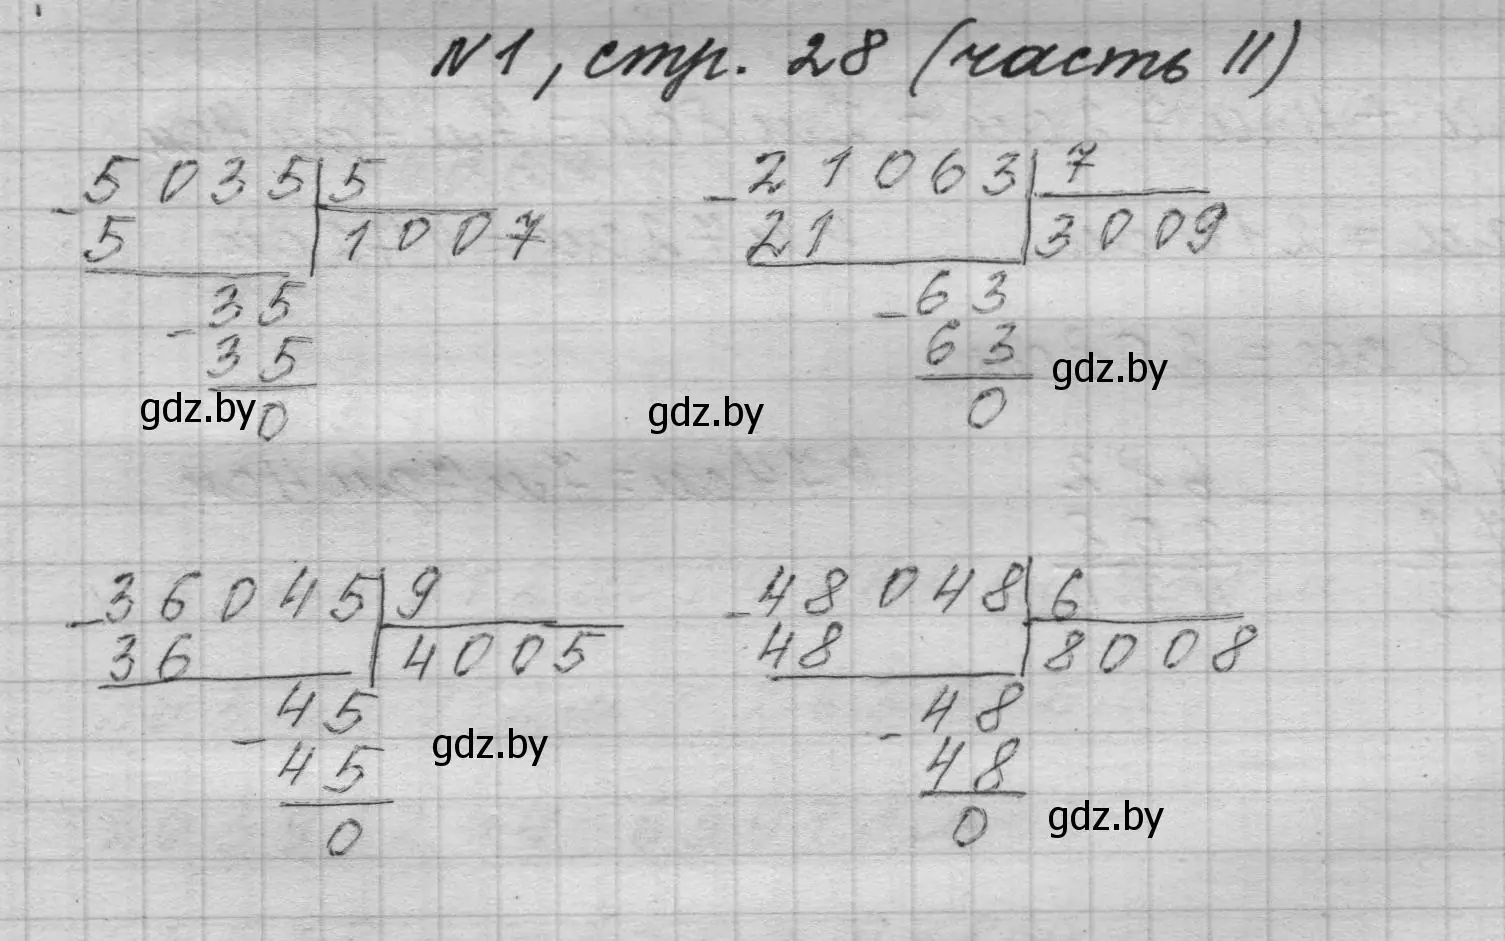 №1, стр. 28 (часть II)
5035 | 5
- 5 | 1007
35
- 35
0
21063 | 7
- 21 | 3009
63
- 63
0
gdz.by
gdz.by
gdz.by
36045 | 9
- 36 | 4005
45
- 45
0
48048 | 6
- 48 | 8008
48
- 48
0
gdz.by
gdz.by